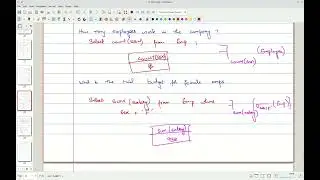 How many employees work in the company ?
Select count(ssn) from Emp ;
(Employee)
count(ssn)
COUNT(ssn)
8
is the total budget for female emps
Select sum (salary) from Emp where
sex = 'F'
sum(salary)
sum(salary)